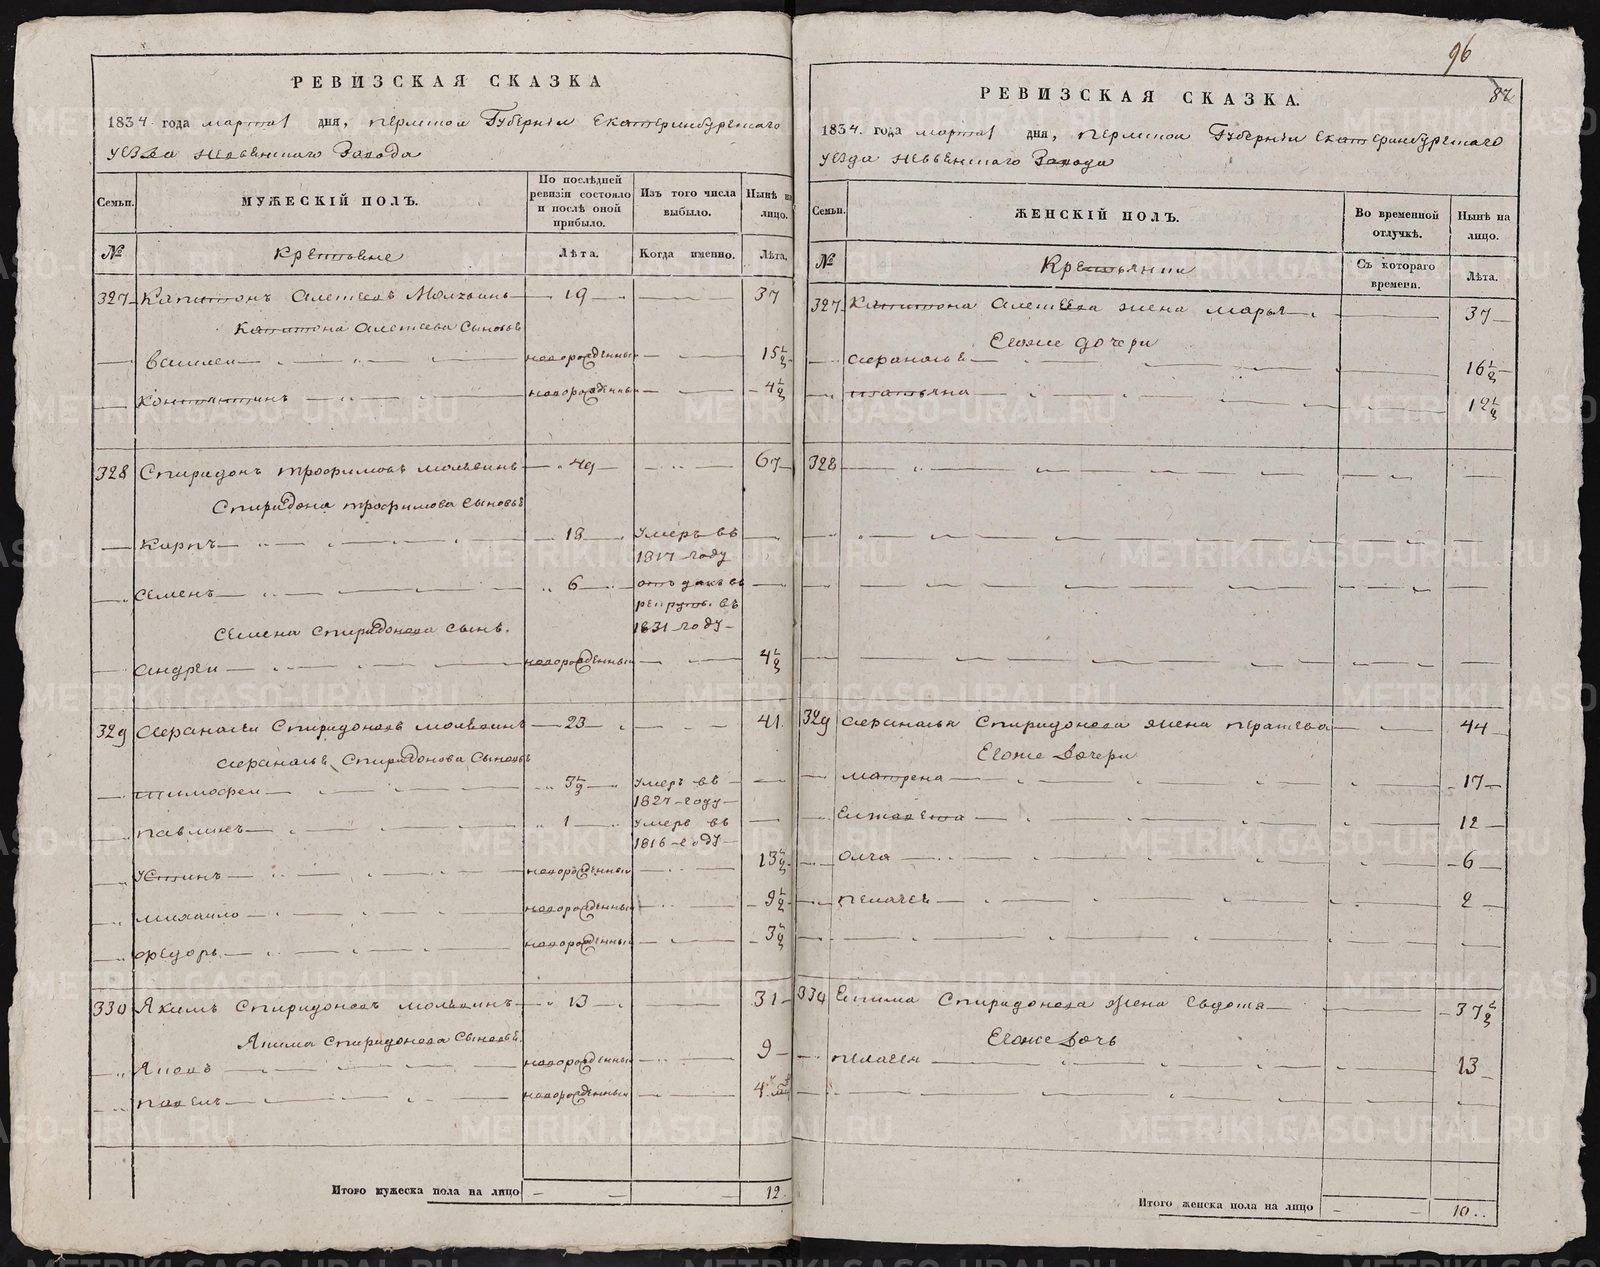 РЕВИЗСКАЯ СКАЗКА
1834 года марта 1 дня, пермской Губернiи Екатеринбургскаго
уезда невьенскаго Завода
Семьи.
МУЖЕСКIЙ ПОЛЪ.
По послѣдней ревизiи состояло и послѣ оной прибыло.
Изъ того числа выбыло.
Нынѣ на лицо.
№
Крестьяне
Лѣта.
Когда именно.
Лѣта.
327 Капитонъ Алексеевъ 19 37
Капитона Алексева Сыновья
Василеи новорожденныи 15½
Константинъ новорожденныи 4½
328 Спиридонъ трофимовъ 49 67
Спиридона трофимова Сыновья
Карпъ 18 Умеръ въ
1817 году
Семенъ 6 отъ данъ въ
рекруты въ
1831 году
Семена Спиридонова сынъ.
Андреи новорожденныи 4½
329 Спиридоновъ 23 41
Спиридонова Сыновья
тимофеи 3½ Умеръ въ
1827 году
Павлинъ 1 Умеръ въ
1816 году
Устинъ новорожденныи 13½
михаило новорожденныи 9½
Федоръ новорожденныи 3½
330 Якимъ Спиридоновъ 13 31
Якима Спиридонова Сыновья
Яковъ новорожденныи 9
Павелъ новорожденныи 4
Итого мужеска пола на лицо 12.
96
87
РЕВИЗСКАЯ СКАЗКА.
1834 года марта 1 дня, пермской Губернiи Екатеринбургскаго
уезда невьенскаго Завода
Семьи.
ЖЕНСКIЙ ПОЛЪ.
Во временной отлучкѣ.
Нынѣ на лицо.
№
Крестьянки
Съ котораго времени.
Лѣта.
327 Капитона Алексеева жена марья 37
Егоже дочери
16½
татьяна 12½
328
329 Спиридонова жена 44
Егоже Дочери
матрена 17
12
олга 6
пелагея 2
330 Екима Спиридонова жена Евдокея 37½
Егоже Дочь
пелагея 13
Итого женска пола на лицо 10.
METRIKI.GASO-URAL.RU